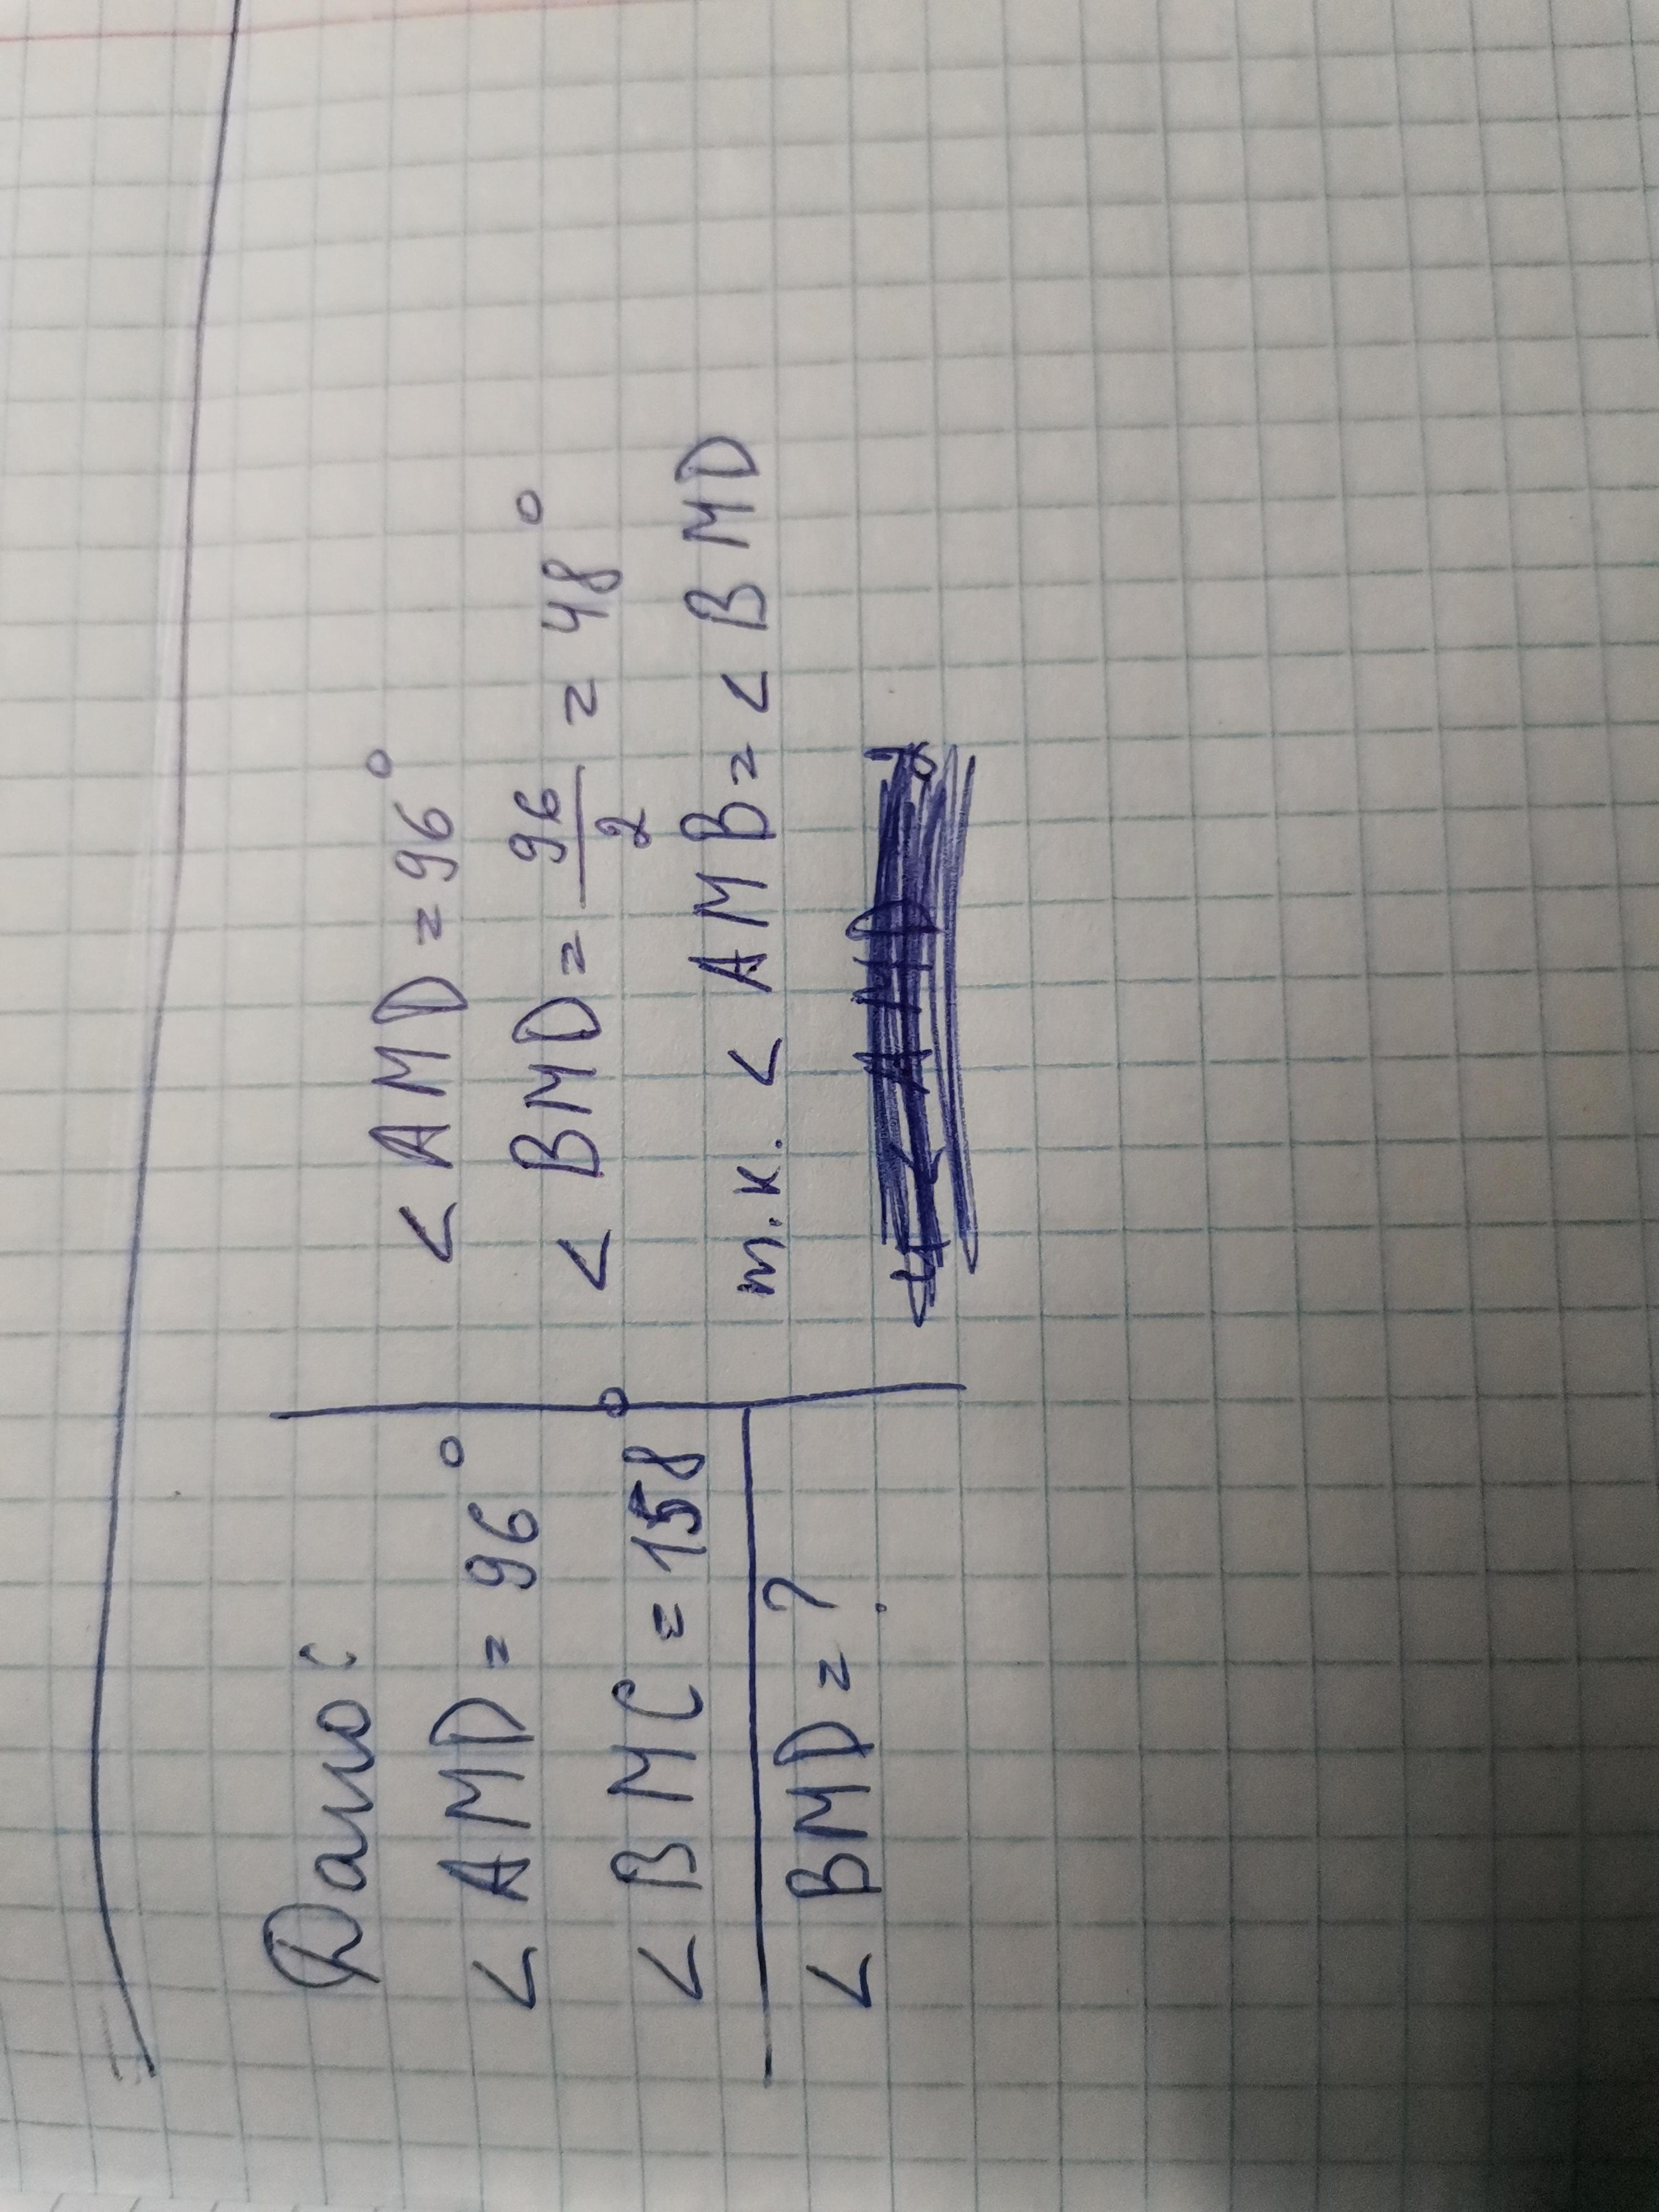 Дано:
< AMD = 96°
< BMC = 158°
< BMD = ?
< AMD = 96°
< BMD = 96/2 = 48°
т.к. < AMB = < BMD